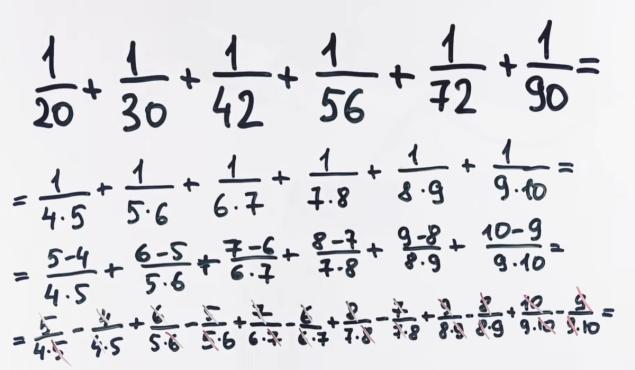 1/20 + 1/30 + 1/42 + 1/56 + 1/72 + 1/90 =
= 1/4·5 + 1/5·6 + 1/6·7 + 1/7·8 + 1/8·9 + 1/9·10 =
= 5-4/4·5 + 6-5/5·6 + 7-6/6·7 + 8-7/7·8 + 9-8/8·9 + 10-9/9·10 =
= 5/4·5 - 4/4·5 + 6/5·6 - 5/5·6 + 7/6·7 - 6/6·7 + 8/7·8 - 7/7·8 + 9/8·9 - 8/8·9 + 10/9·10 - 9/9·10 =